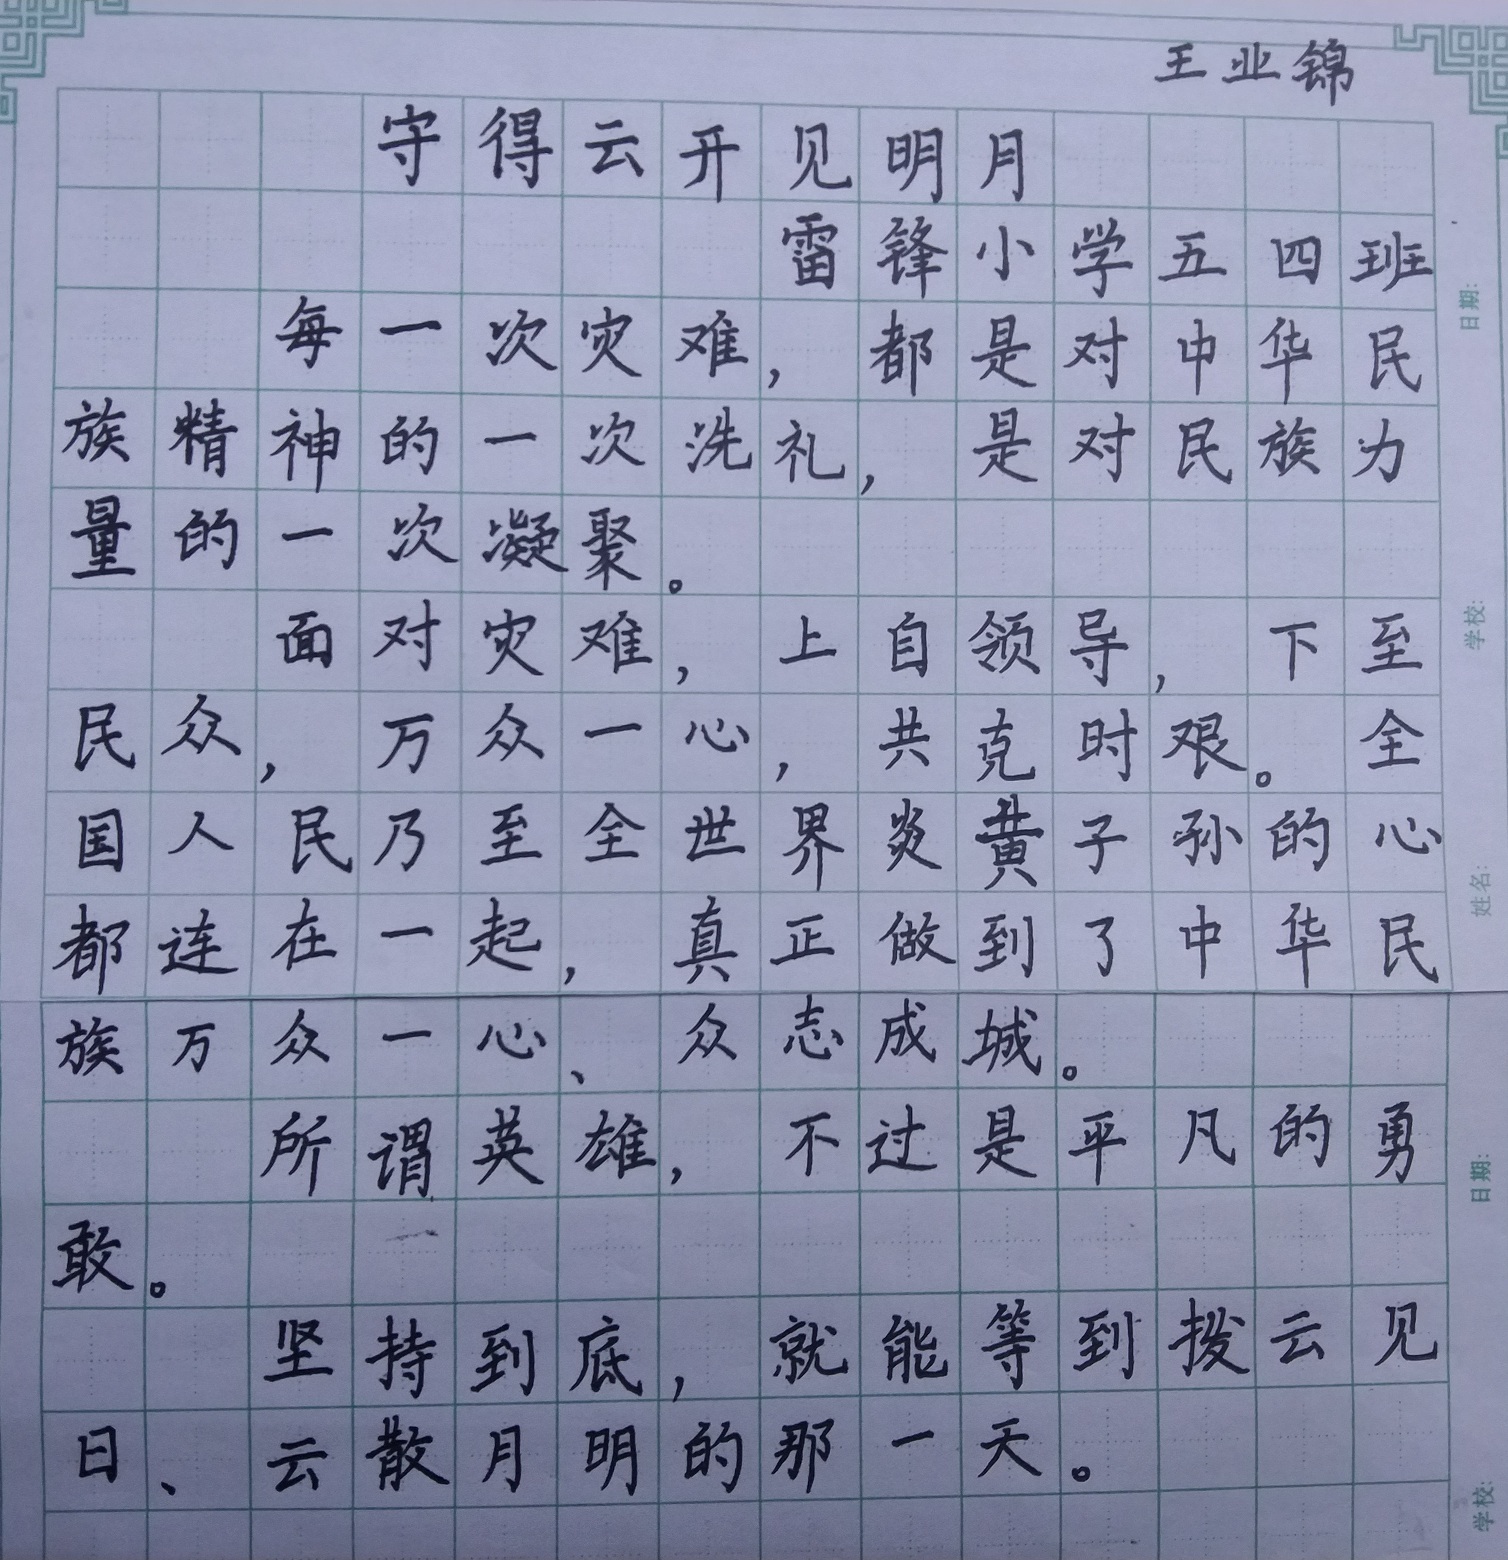 王业锦
守得云开见明月
雷锋小学五四班
每一次灾难，都是对中华民
族精神的一次洗礼，是对民族力
量的一次凝聚。
面对灾难，上自领导，下至
民众，万众一心，共克时艰。全
国人民乃至全世界炎黄子孙的心
都连在一起，真正做到了中华民
族万众一心、众志成城。
所谓英雄，不过是平凡的勇
敢。
坚持到底，就能等到拨云见
日、云散月明的那一天。
日期:
学校:
姓名:
日期:
学校: